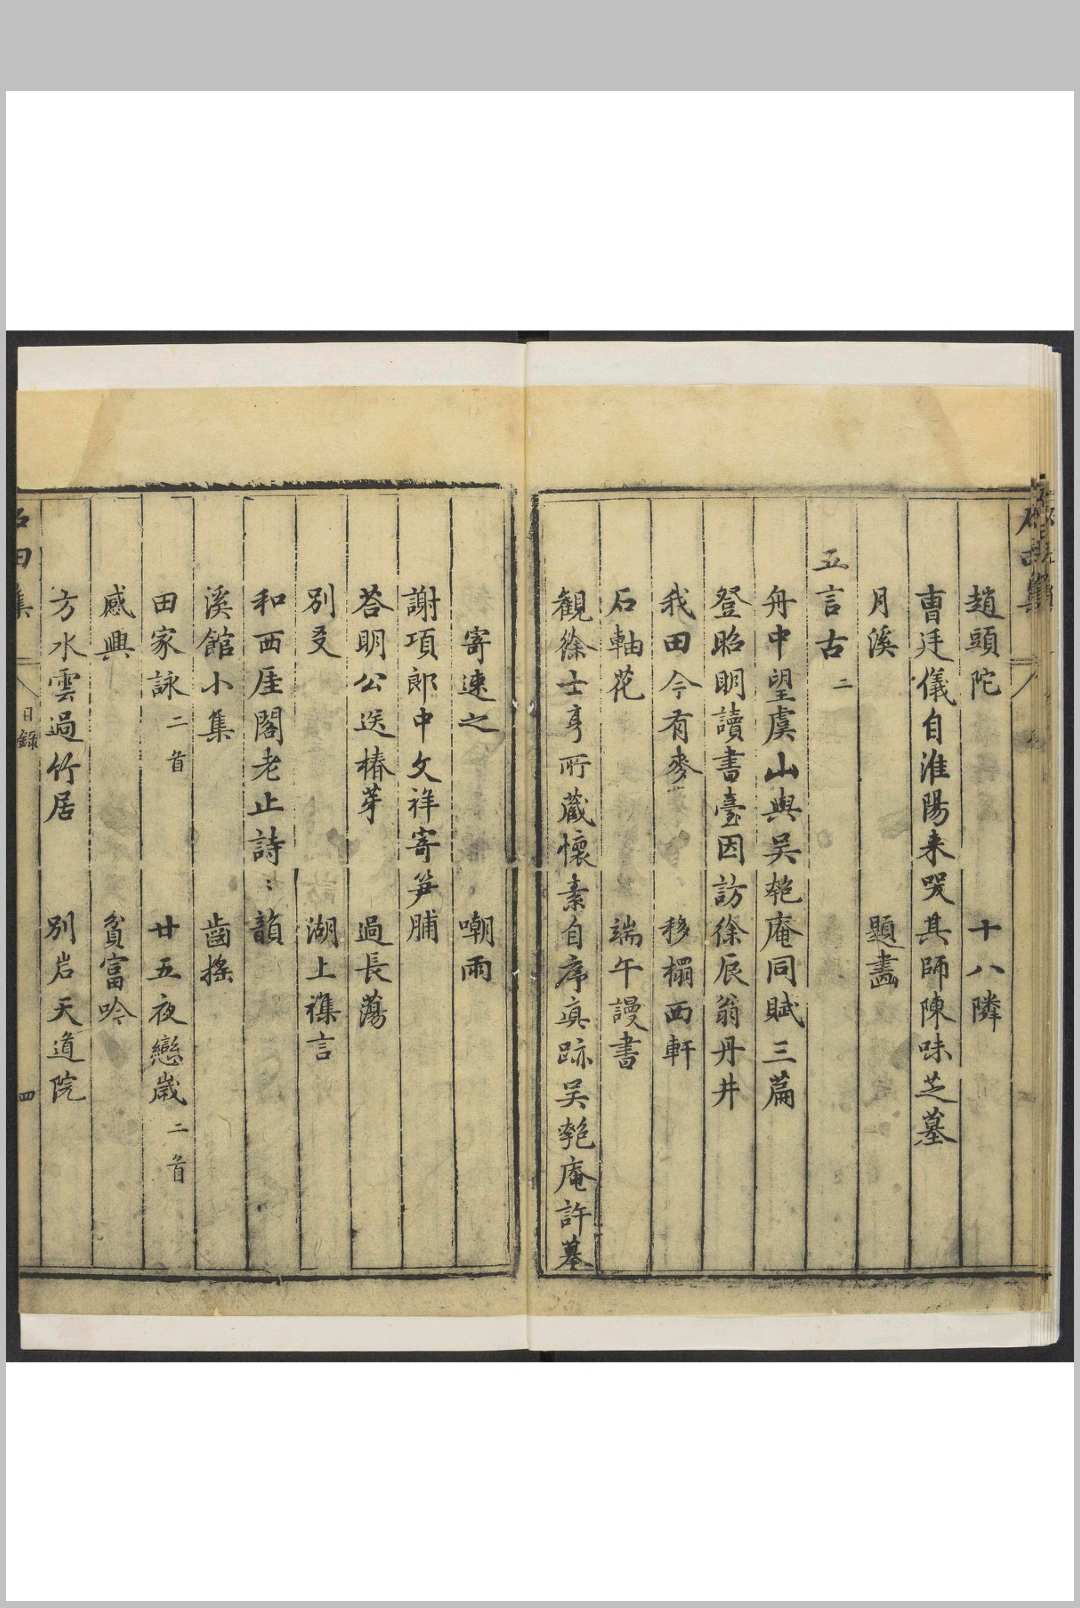 趙頭陀　十八隣
曺廷儀自淮陽来哭其師陳味芝墓
月溪　題畫
五言古二
舟中望虞山與吴匏庵同賦三篇
登昭明讀書臺因訪徐辰翁丹井
我田今有麥　移榻西軒
石軸花　端午謾書
観徐士亨所蔵懷素自序眞跡吴匏庵許摹
寄速之　嘲雨
謝項郎中文祥寄笋脯
荅明公送椿芽　過長蕩
別叐　湖上襍言
和西厓閣老止詩〻韻
溪館小集　齒搖
田家詠二首　廿五夜戀歳二首
感興　貧富吟
方水雲過竹居　別岩天道院
石田集
目錄
四